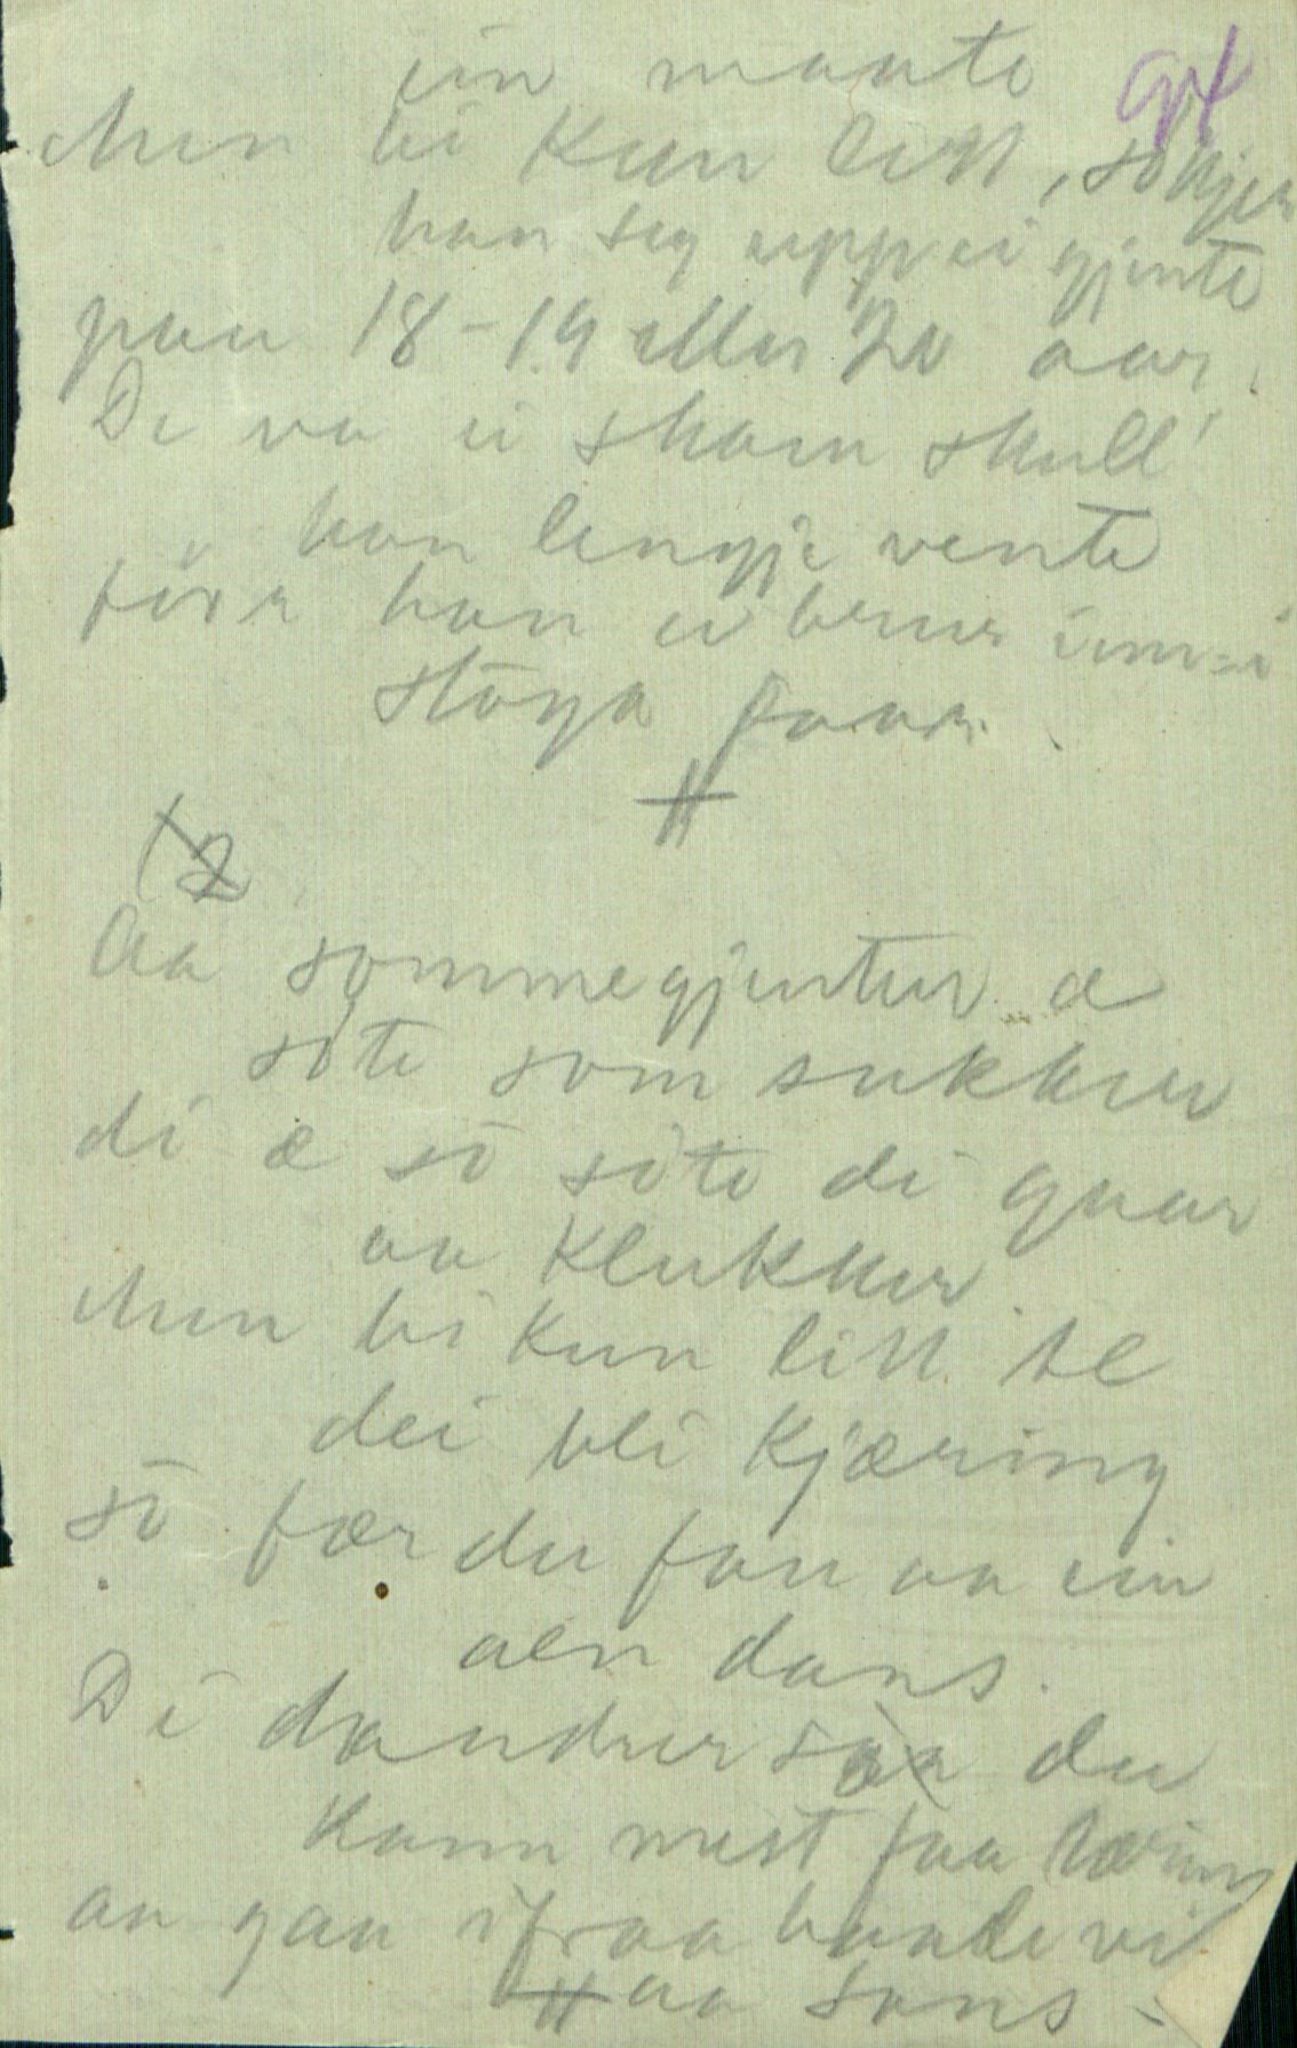 ein maate
Men bi kun litt, sö kjem
han seg upp ei gjente
paa 18-19 eller 20 aar.
De va ei skam skull'
han lengje vente
förr han ei brur inn i
stöga faar.
12
Aa somme gjentur æ
söte som sukker
di æ sö söte di gaar
aa klukker.
Men bi kun litt te
dei bli kjæring
sö fær du faa aa ein
aen dans.
Di dandrer saa du
kann mest faa
aa gaa ifraa baade vi
aa sans.